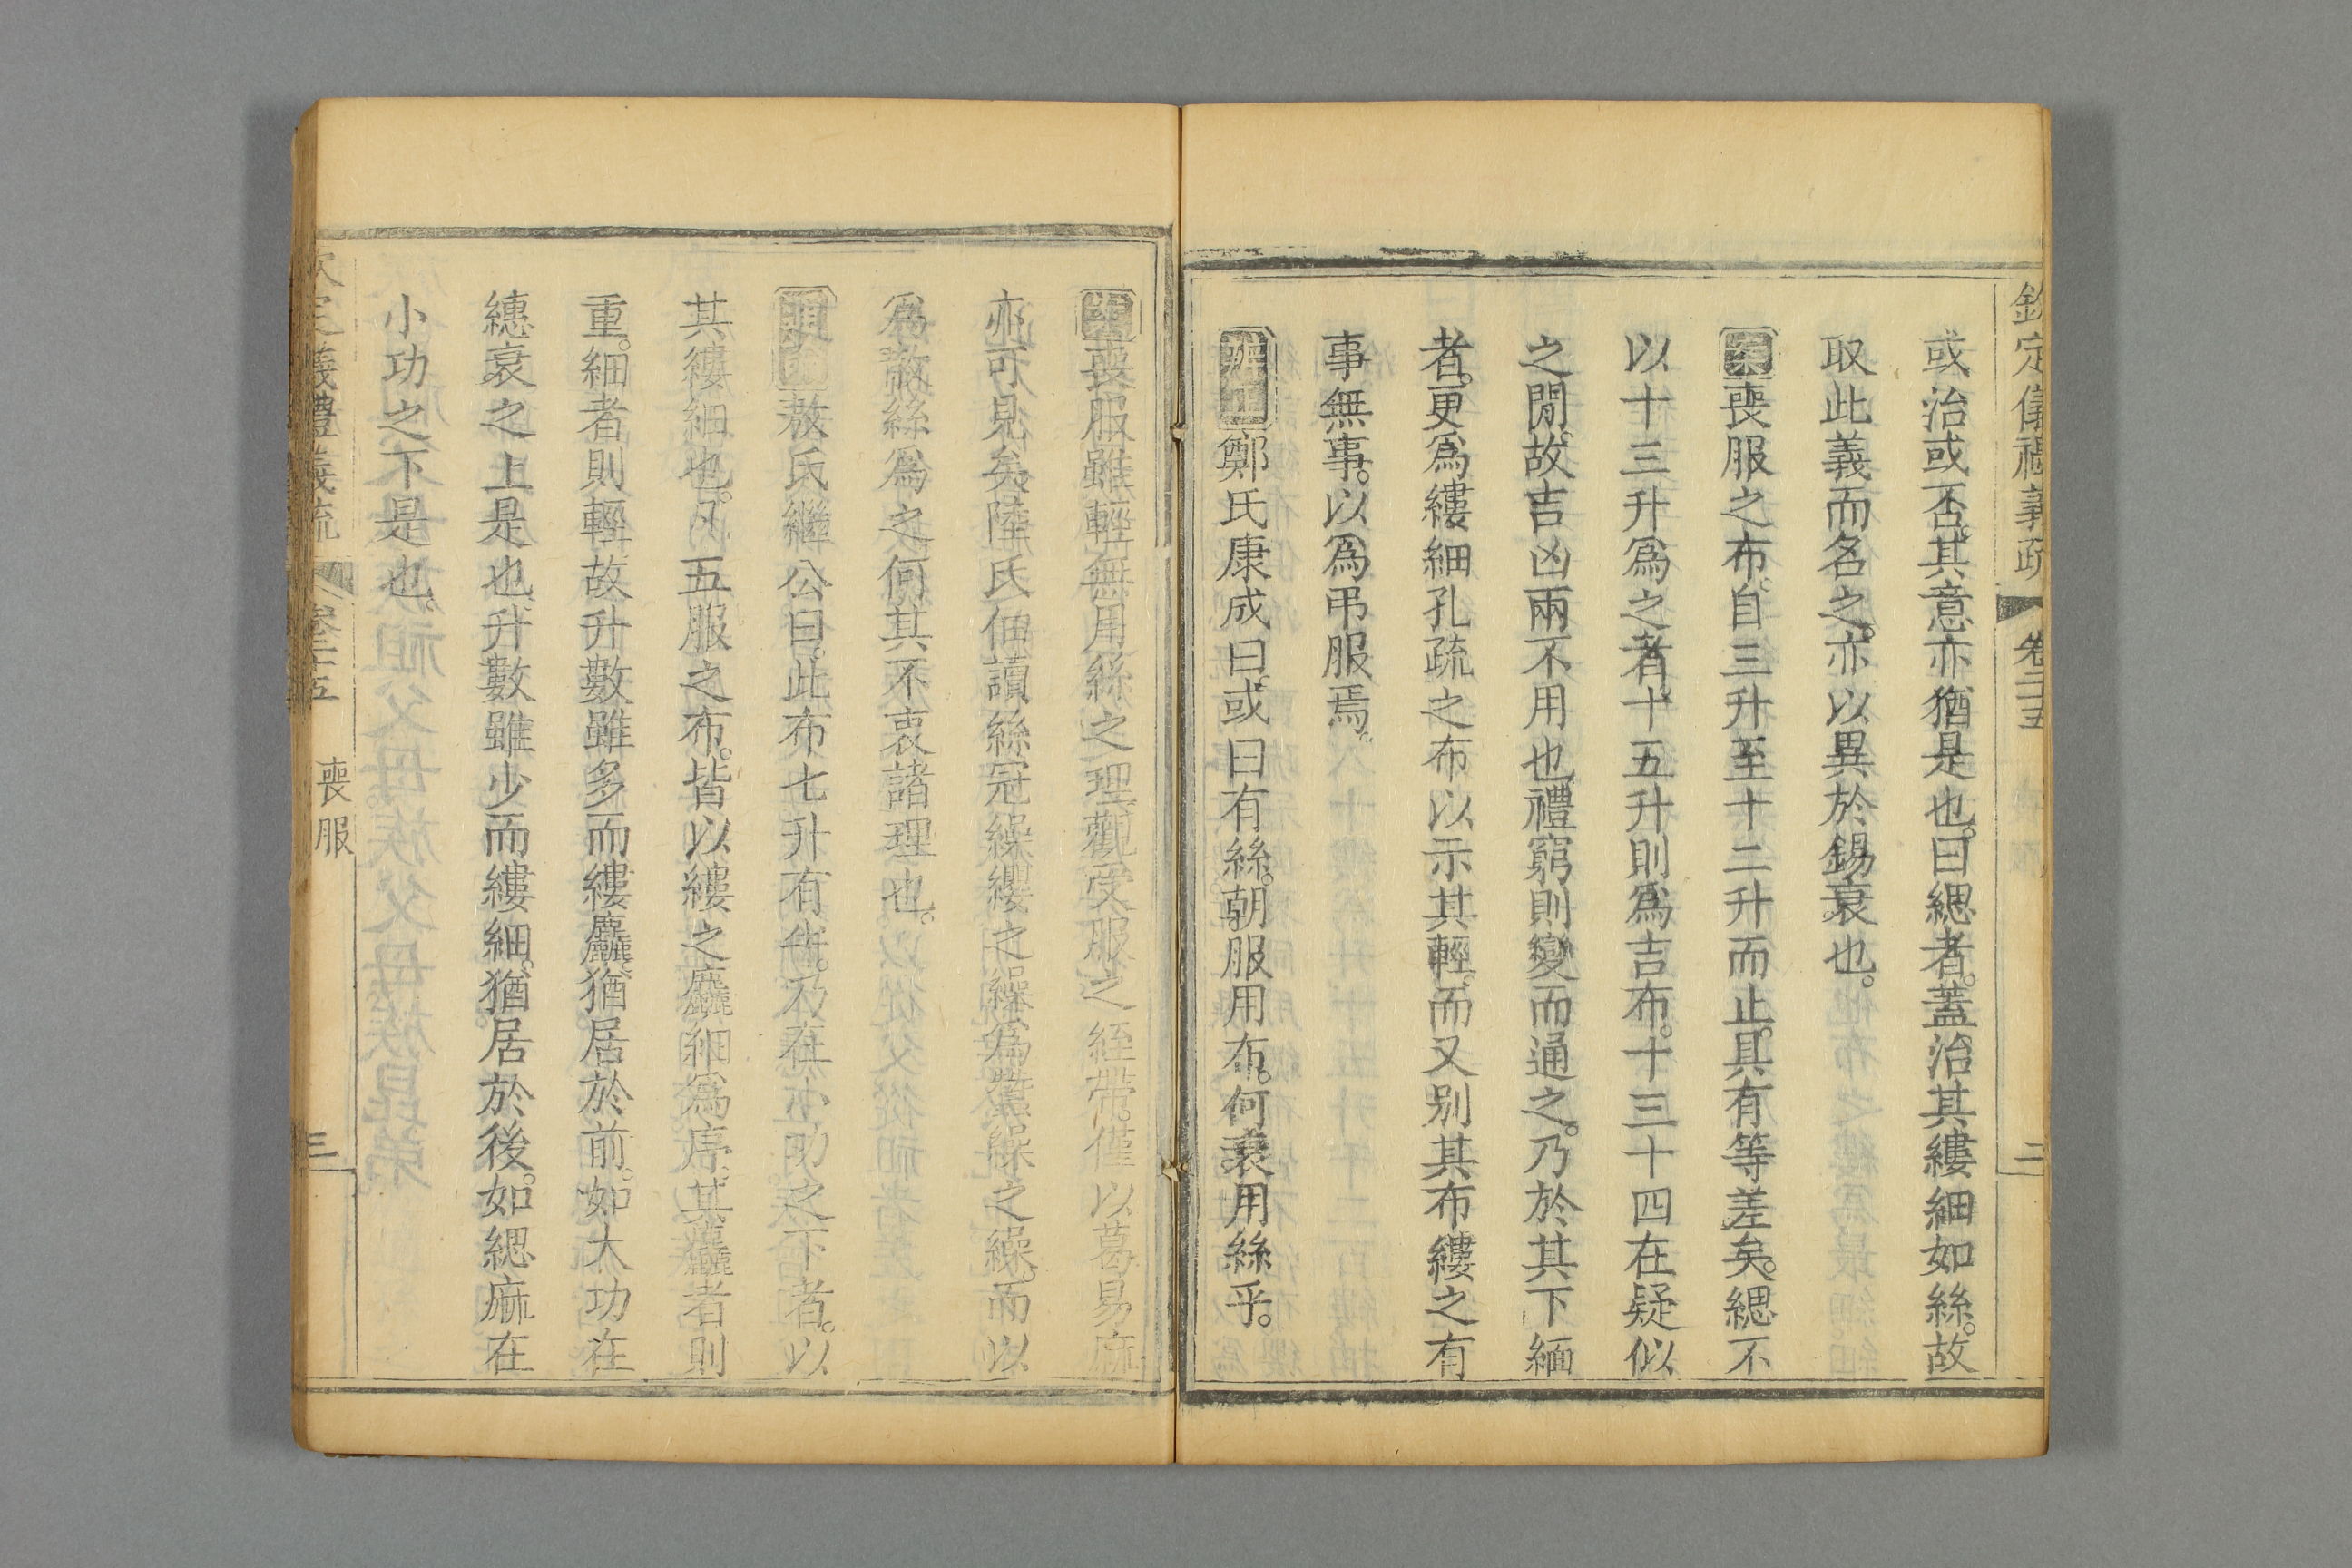 欽定儀禮義疏 卷二十五 二
或治或否。其意亦猶是也。曰緦者。蓋治其縷細如絲。故
取此義而名之。亦以異於錫衰也。
案喪服之布。自三升至十二升而止。具有等差矣。緦不
以十三升爲之者。十五升則爲吉布。十三十四在疑似
之閒。故吉凶兩不用也。禮窮則變而通之。乃於其下緬
者。更爲縷細孔疏之布以示其輕。而又别其布縷之有
事無事。以爲弔服焉。
辨正鄭氏康成曰。或曰有絲。朝服用布。何衰用絲乎。
案喪服雖輕無用絲之理觀受服之絰帶。僅以葛易麻
亦可見矣。陸氏佃讀絲冠繰纓之繰爲蠶繰之繰。而以
爲散絲爲之何其不衷諸理也。
敖氏繼公曰。此布七升有半。乃在小功之下者。以
其縷細也。凡五服之布。皆以縷之麤細爲序。其麤者則
重。細者則輕故升數雖多而縷麤。猶居於前。如大功在
繐衰之上是也。升數雖少而縷細。猶居於後。如緦麻在
小功之下是也。
欽定儀禮義疏 卷二十五 喪服 三